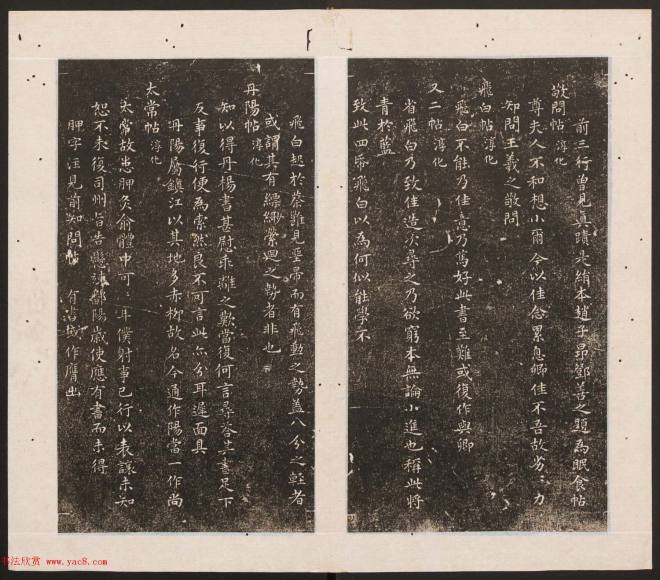 前三行曾見真蹟是絹本趙子昂鄧善之題為眠食帖
敬問帖 淳化
尊夫人不和想小爾今以佳念累息卿佳不吾故劣〻力
知問王羲之敬問
飛白帖 淳化
飛白不能乃佳意乃篤好此書至難或復作與卿
又二帖 淳化
省飛白乃致佳造次尋之乃欲窮本無論小進也稱此將
青於藍
致此四帋飛白以為何似能學不
飛白起於蔡雖見堊帚而有飛動之勢蓋八分之輕者
或謂其有縹緲縈迴之勢者非也
丹陽帖 淳化
知以得丹楊書甚慰乖離之歎當復何言尋答其書足下
反事復行便為索然良不可言此亦分耳遲面具
丹陽屬鎮江以其地多赤柳故名今通作陽當一作尚
太常帖 淳化
太常故患胛灸俞體中可〻耳僕射事已行以表讓未知
恕不未復司州旨告懸情鄱陽歲使應有書而未得
胛字注見前知問帖 有書故作膺出
书法欣赏 www.yac8.com